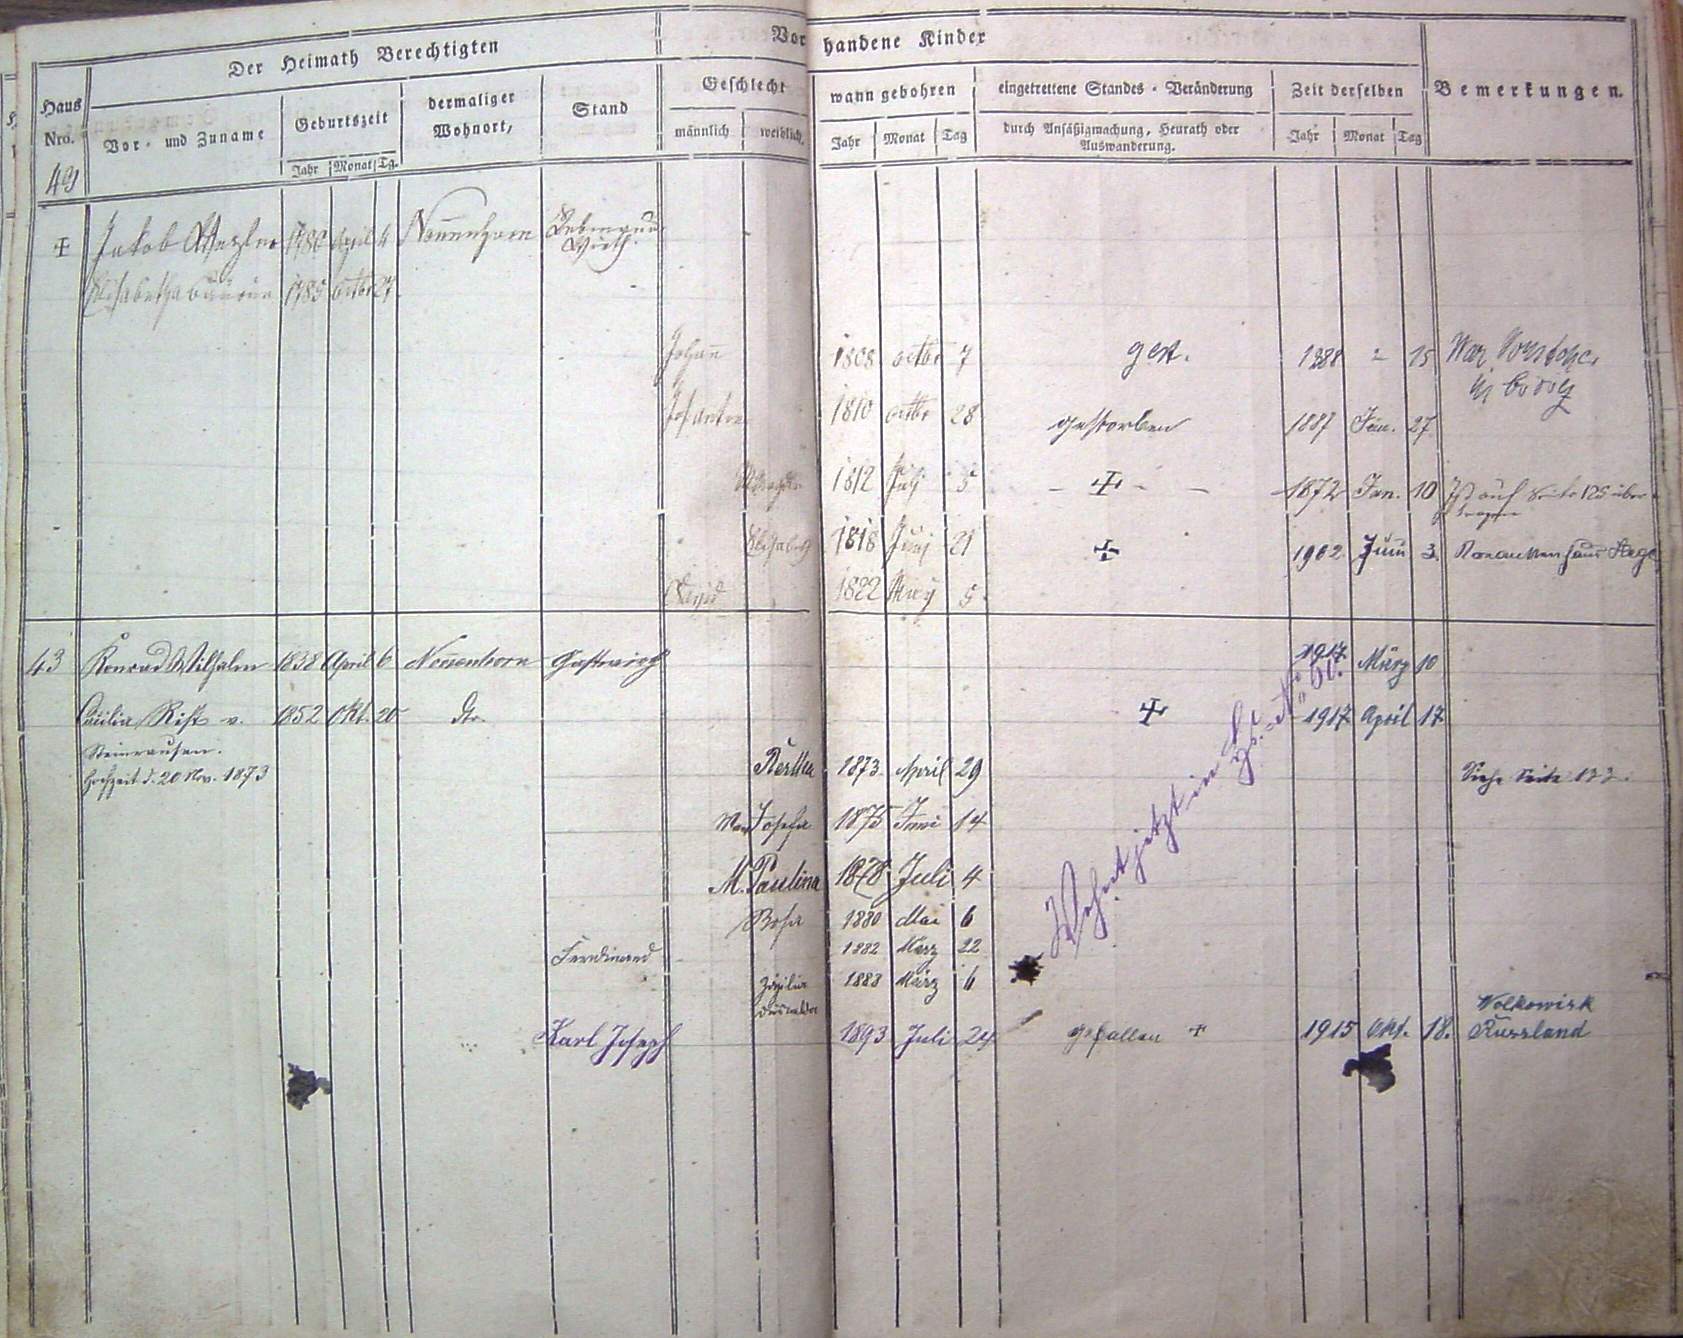 Der Heimath Berechtigten
Vorhandene Kinder
Haus Nro.
Vor- und Zuname
Geburtszeit
Jahr Monat Tg.
dermaliger Wohnort,
Stand
Geschlecht
männlich weiblich.
wann gebohren
Jahr Monat Tag
eingetrettene Standes-Veränderung
durch Ansäßigmachung, Heurath oder
Auswanderung.
Zeit derselben
Jahr Monat Tag
Bemerkungen.
49
+ Jakob 1780 April 4 Nonnenhorn
Wirth.
Elisabetha 1785 octbr 27
Johann 1808 octbr 7 gest. 1888 2 15 War Vorsteher
1810 octbr 28 gestorben 1887 Jan. 27
1812 Julj 5 - + - - 1872 Jan. 10 Ist auf Seite 125 über-
tragen
Elisabeth 1818 Junj 21 + 1902 Juni 3.
David 1822 May 5.
43 Konrad Wilhelm 1838 April 6 Nonnenhorn Gastwirth 1917 März 10
Cäcilia Rist v. 1852 Okt. 20 dto. + 1917 April 17
Hochzeit d. 20 Nov. 1873
Bertha 1873 April 29 Siehe Seite 122.
Josefa 1875 Juni 14
M. Paulina 1878 Juli 4
Rosa 1880 Mai 6
Ferdinand 1882 März 22
Zäzilia 1888 März 6
Karl Joseph 1893 Juli 24 gefallen + 1915 Okt. 18. Wolkowisk
Russland
Wohnt jetzt in Hs. No 60.